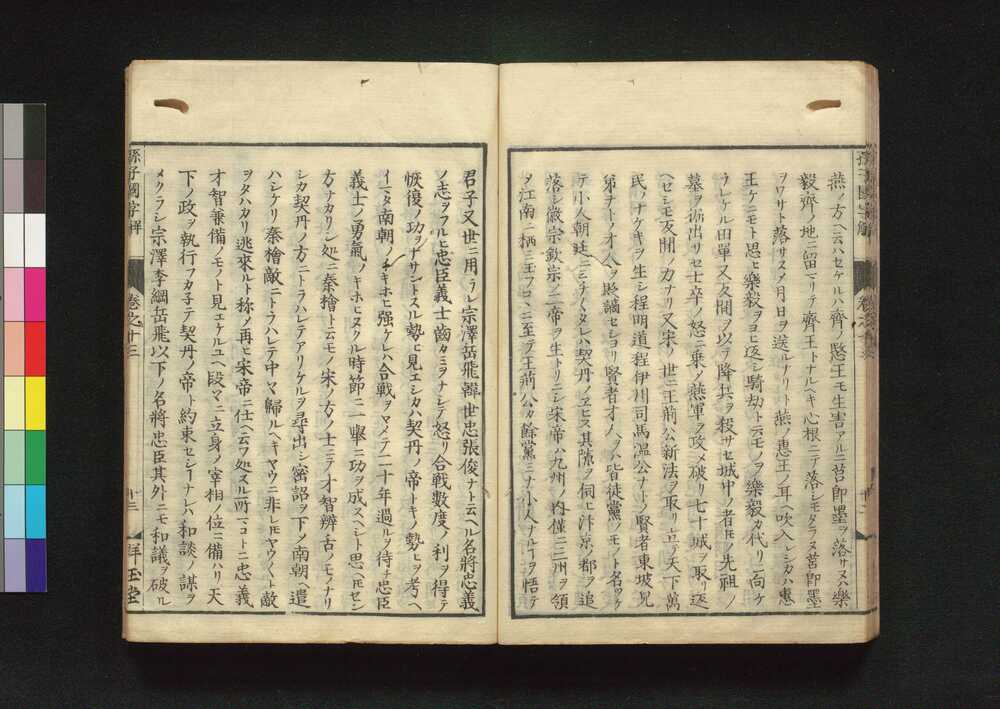 燕ノ方ヘ云ハセケルハ齊ノ愍王モ生害アル上ニ莒即墨ヲ落サヌハ樂
毅齊ノ地ニ留マリテ齊王トナルヘキ心根ニテ落レモタラヌ莒即墨
ヲワサト落サスメ月日ヲ送ルナリト燕ノ惠王ノ耳ヘ吹入レシカハ惠
王ケニモト思ヒ樂毅ヲヨヒ返シ騎劫ト云モノヲ樂毅カ代リニ向ケ
ラレケル田單又反間ヲ以テ降兵ヲ殺サセ城中ノ者𪜈ノ先祖ノ
墓ヲ掘出サセ士卒ノ怒ニ乘メ燕軍ヲ攻メ破リ七十城ヲ取リ返
ヘセシモ反間ノ力ナリ又宋ノ世ニ王荊公新法ヲ取リ立テ天下萬
民ノナケキヲ生シ程明道程伊川司馬溫公ナトノ賢者東坡兄
弟ナトノ才人ヲ貶謫セシヨリ賢者才人ヲハ皆徒黨ノモノト名ツケ
テ小人朝廷ニミチ〱タレハ契丹ノヱヒス其隙ヲ伺ヒ汴京ノ都ヲ追
落シ徽宗欽宗二帝ヲ生トリニシ宋帝ハ九州ノ内僅ニ三州ヲ領
メ江南ニ栖ミ玉フコヽニ至テ王荊公カ餘黨ミナ小人ナルヿヲ悟テ
君子又世ニ用ラレ宗澤岳飛韓世忠張俊ナト云ヘル名將忠義
ノ志ヲフルヒ忠臣義士齒カミヲナシテ怒リ合戰數度ノ利ヲ得テ
恢復ノ功ヲナサントスル勢ヒ見エシカハ契丹ノ帝トキノ勢ヒヲ考ヘ
イマタ南朝ノチキホヒ强ケレハ合戰ヲヤメテ二十年過ルヲ待ハ忠臣
義士ノ勇氣ノキホヒヌクル時節ニ一擧ニ功ヲ成スヘシト思ヘ𪜈セン
方ナカリシ処ニ秦檜ト云モノ宋ノ方ノ士ニテ才智辨舌ノモノナリ
シカ契丹ノ方ニトラハレテアリケルヲ尋出シ密詔ヲ下メ南朝ヘ遣
ハシケリ秦檜敵ニトラハレテ中々歸ルヘキヤウニ非レ𪜈ヤウ〱ト敵
ヲタハカリ逃來ルト称メ再ヒ宋帝ニ仕ヘ云フ処スル所マコトニ忠義
才智兼備ノモノト見ェケルユヘ段々ニ立身メ宰相ノ位ニ備ハリ天
下ノ政ヲ執行フカ子テ契丹ノ帝ト約束セシヿナレハ和談ノ謀ヲ
メクラシ宗澤李綱岳飛以下ノ名將忠臣其外ニモ和議ヲ破ル
孫子國字解
卷之十三
十三
祥玉堂